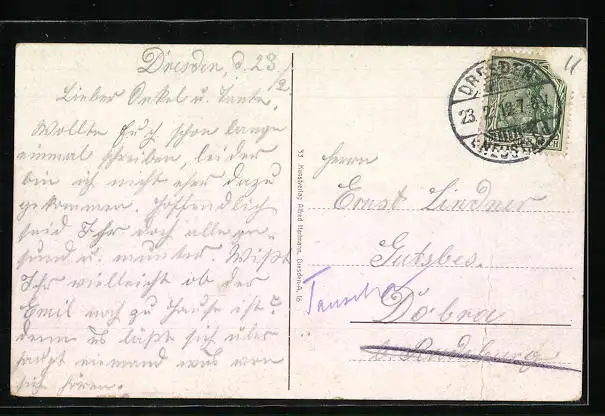 Dresden, d. 23/2.
Lieber Onkel u. Tante,
Wollte Euch schon lange
einmal schreiben, leider
bin ich nicht eher dazu
gekommen. Hoffendlich
seid Ihr doch alle ge-
sund u. munter. Wißt
Ihr vielleicht ob der
Emil noch zu Hause ist?
denn es läßt sich über-
haupt niemand was von
sich hören.
33 Kunstverlag Alfred Hartmann, Dresden-A. 16
DRESDEN
23.2.
NEUST
Herrn
Ernst Lindner
Gutsbes.
Döbra
b. Radeburg